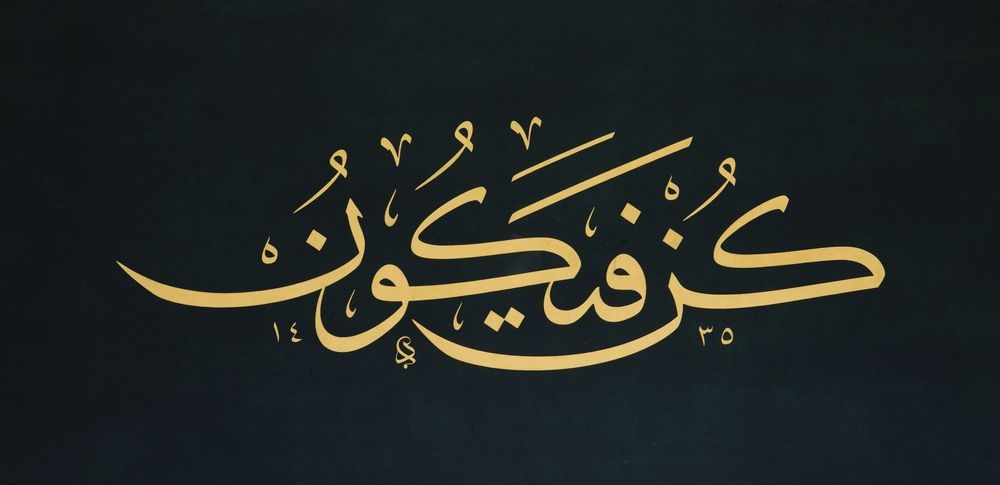 كُنْ فَيَكُونُ
١٤٣٥